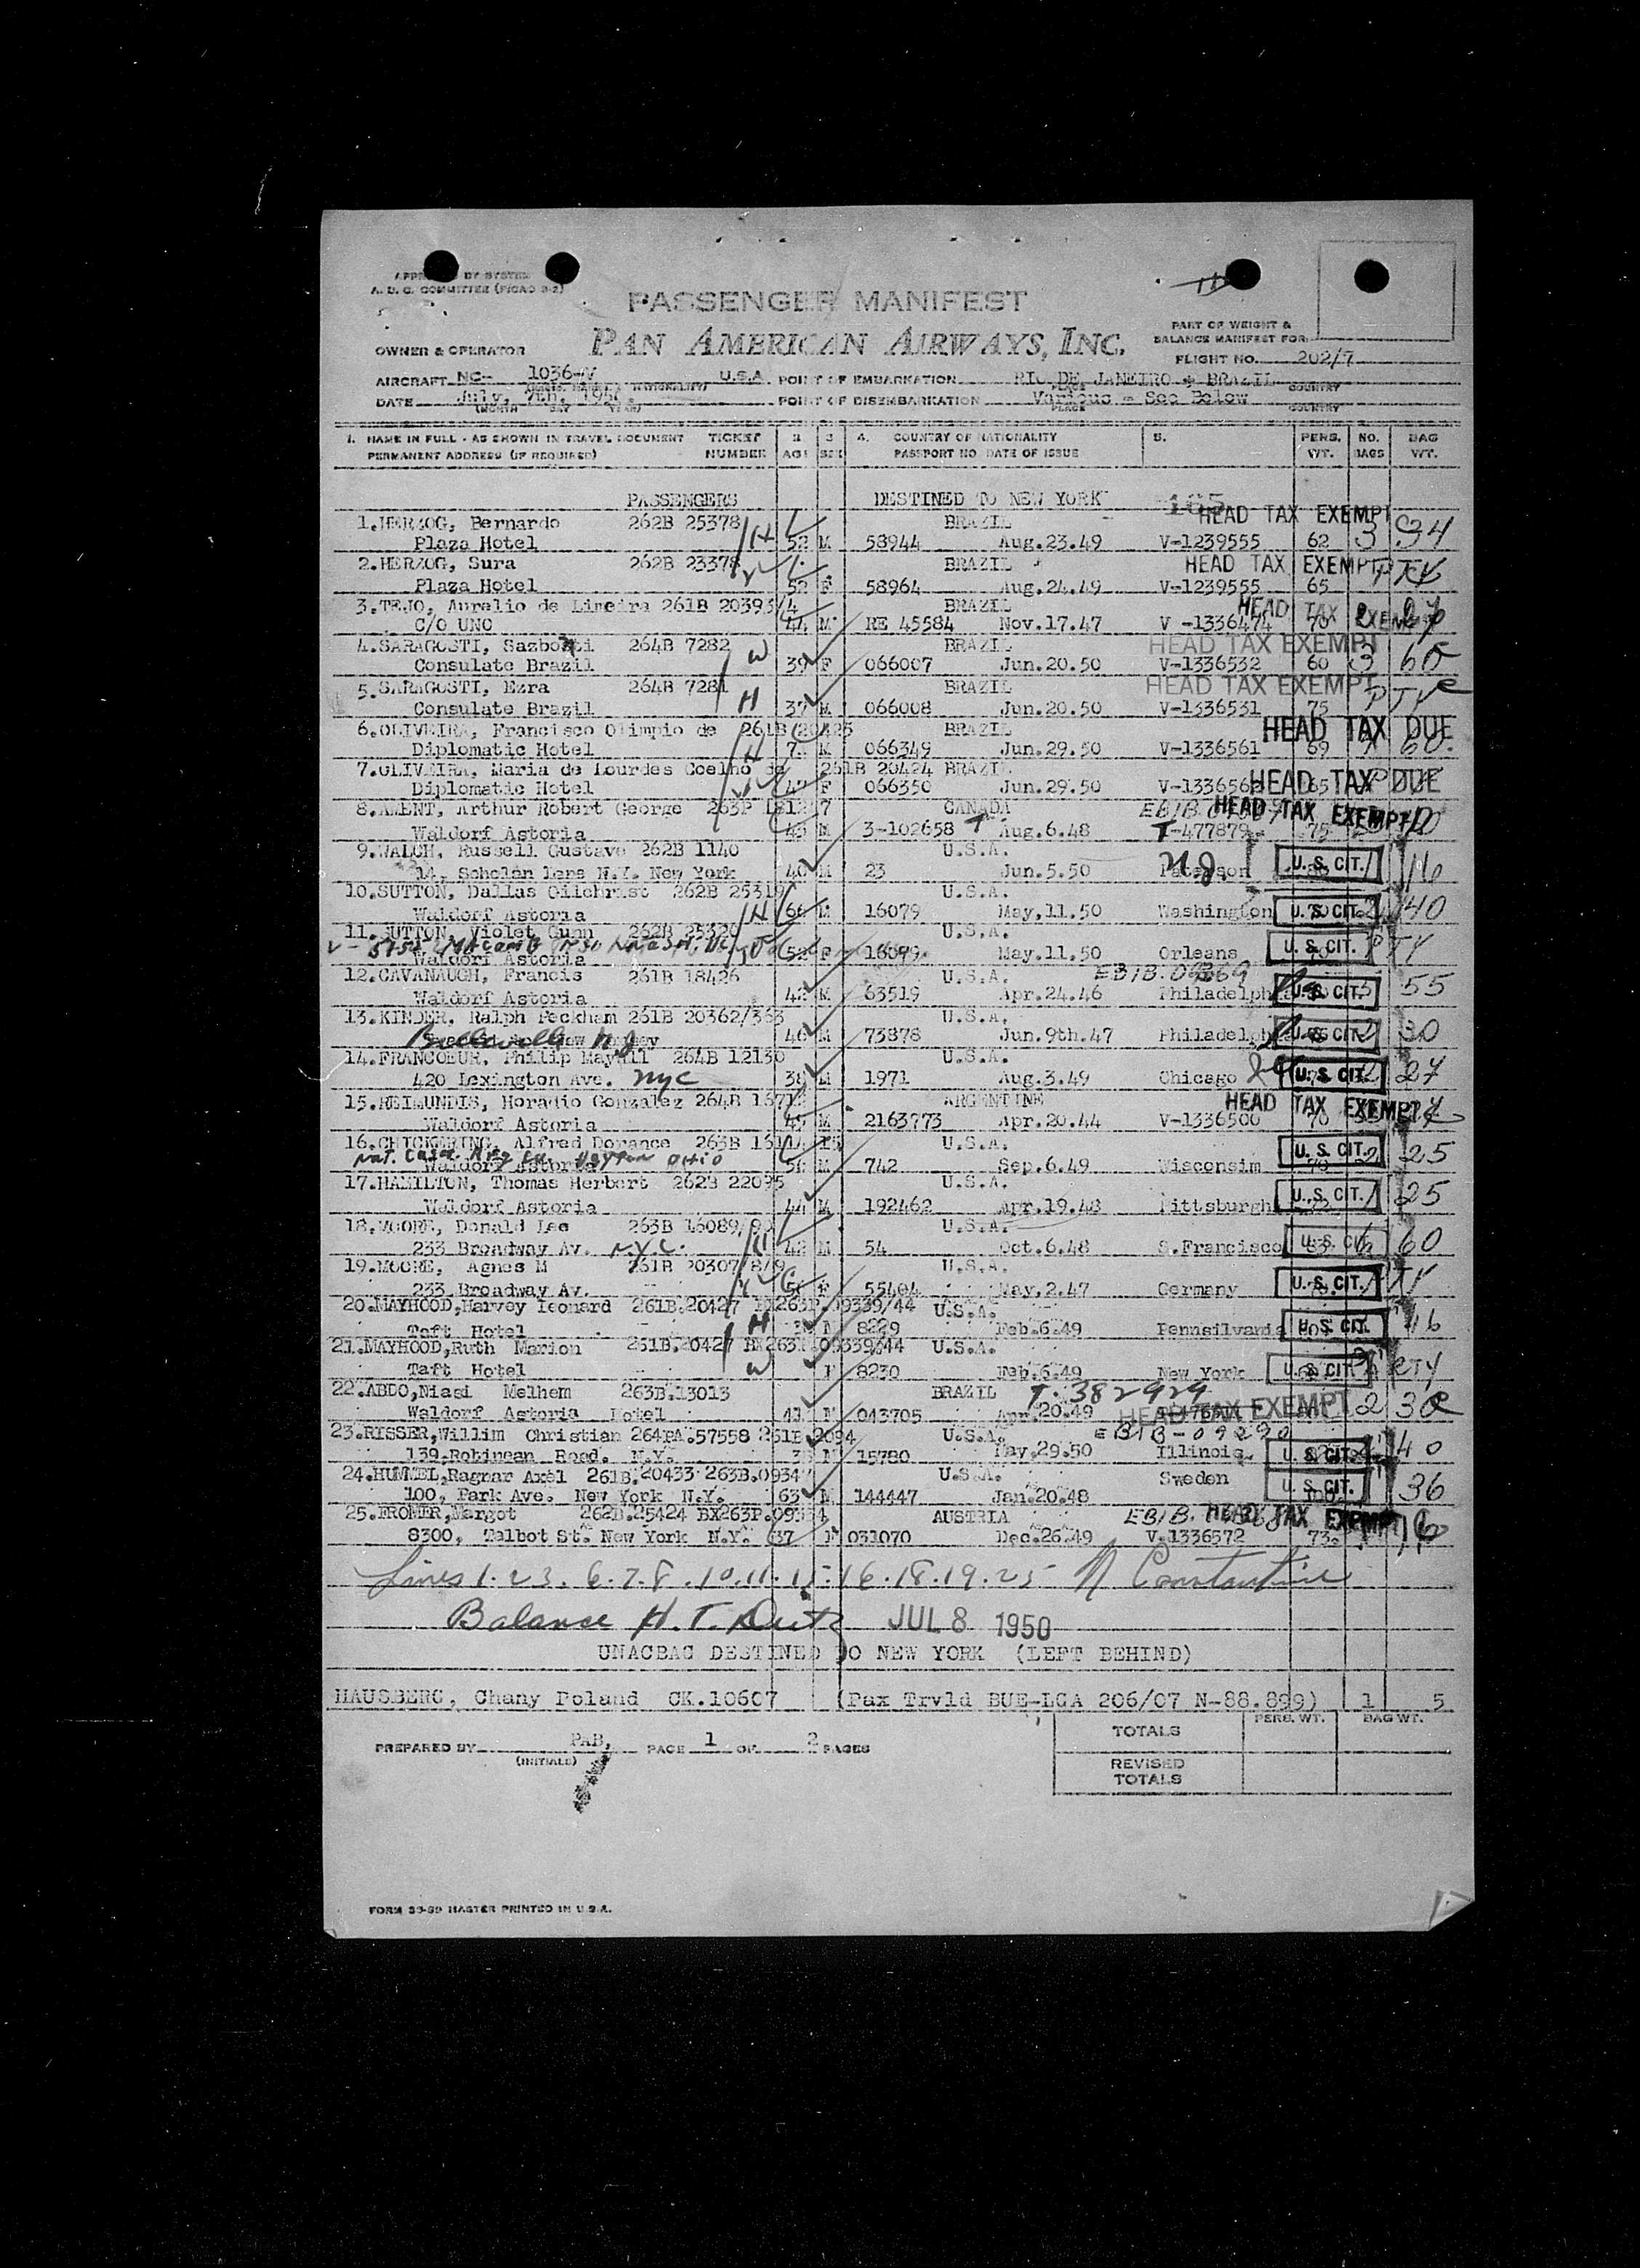 APPROVED BY SYSTEM
A. D. C. COMMITTEE (PICAO 2-2)
PASSENGER MANIFEST
PAN AMERICAN AIRWAYS, INC.
PART OF WEIGHT &
BALANCE MANIFEST FOR
OWNER & OPERATOR
FLIGHT NO. 202/7
AIRCRAFT NC- 1036-V U.S.A. POINT OF EMBARKATION RIO DE JANEIRO + BRAZIL
PLACE COUNTRY
DATE July, 7th, 1950. POINT OF DISEMBARKATION Various - See Below
(MONTH DAY YEAR) PLACE COUNTRY
1. NAME IN FULL - AS SHOWN IN TRAVEL DOCUMENT TICKET 2 3 4. COUNTRY OF NATIONALITY 5. PERS. NO. BAG
PERMANENT ADDRESS (IF REQUIRED) NUMBER AGE SEX PASSPORT NO DATE OF ISSUE WT. BAGS WT.
PASSENGERS DESTINED TO NEW YORK 165
1.HERZOG, Bernardo 262B 25378 BRAZIL HEAD TAX EXEMPT
Plaza Hotel H 52 M 58944 Aug.23.49 V-1239555 62 3 34
2.HERZOG, Sura 262B 23378 BRAZIL HEAD TAX EXEMPT
Plaza Hotel 52 F 58964 Aug.24.49 V-1239555 65 PTY
3.TEJO, Aurelio de Limeira 261B 20393/4 BRAZIL HEAD TAX EXEMPT
C/O UNO 44 M RE 45584 Nov.17.47 V -1336474 70
4.SARAGOSTI, Sazbonti 264B 7282 BRAZIL HEAD TAX EXEMPT
Consulate Brazil W 39 F 066007 Jun.20.50 V-1336532 60 3 60
5.SARAGOSTI, Ezra 264B 7281 BRAZIL HEAD TAX EXEMPT
Consulate Brazil H 37 M 066008 Jun.20.50 V-1336531 75 PTY
6.OLIVEIRA, Francisco Olimpio de 261B 20425 BRAZIL HEAD TAX DUE
Diplomatic Hotel H M 066349 Jun.29.50 V-1336561 69 60.
7.OLIVEIRA, Maria de Lourdes Coelho de 261B 20424 BRAZIL
Diplomatic Hotel F 066350 Jun.29.50 HEAD TAX DUE
8.AMENT, Arthur Robert George 263P CANADA HEAD TAX EXEMPT
Waldorf Astoria 45 M 3-102658 T Aug.6.48 T-477879 75
9.WALCH, Russell Gustave 262B 1140 U.S.A.
14, Scholan Lans N.Y. New York 40 M 23 Jun.5.50 Paterson N.J. U.S. CIT. 1 16
10.SUTTON, Dallas Gilchrist 262B 25319 U.S.A.
Waldorf Astoria H 66 M 16079 May,11.50 Washington U.S. CIT. 40
11.SUTTON, Violet Gunn 262B 25320 U.S.A.
Waldorf Astoria 52 F 16079 May.11.50 Orleans U.S. CIT. PTY
12.CAVANAUGH, Francis 261B 18426 U.S.A.
Waldorf Astoria 42 M 63519 Apr.24.46 Philadelphia U.S. CIT. 55
13.KINDER, Ralph Peckham 261B 20362/363 U.S.A.
N.J. 46 M 73878 Jun.9th.47 Philadelphia U.S. CIT. 30
14.FRANCOEUR, Philip Mayhill 264B 12130 U.S.A.
420 Lexington Ave. NYC 38 M 1971 Aug.3.49 Chicago U.S. CIT. 27
15.REIMUNDIS, Horadio Gonzalez 264B ARGENTINE HEAD TAX EXEMPT
Waldorf Astoria 45 M 2163773 Apr.20.44 V-1336500 70
16.CHICKERING, Alfred Dorance 263B U.S.A.
Nat. Cash Reg Co. Dayton Ohio
Waldorf Astoria M 742 Sep.6.49 Wisconsim U.S. CIT. 2 25
17.HAMILTON, Thomas Herbert 262B 22095 U.S.A.
Waldorf Astoria 44 M 192462 Apr.19.48 Pittsburgh U.S. CIT. 1 25
18.MOORE, Donald Lee 263B 16089/90 U.S.A.
233 Broadway Av. N.Y.C. H 42 M 54 Oct.6.48 S.Francisco U.S. CIT. 60
19.MOORE, Agnes M 261B 20307/8/9 U.S.A.
233 Broadway Av. F 55404 May,2.47 Germany U.S. CIT.
20.MAYHOOD,Harvey Leonard 261B.20427 BX263P.09339/44 U.S.A.
Taft Hotel H M 8229 Feb.6.49 Pennsilvania U.S. CIT. 46
21.MAYHOOD,Ruth Marion 261B.20427 BX263P.09339/44 U.S.A.
Taft Hotel W F 8230 Feb.6.49 New York U.S. CIT.
22.ABDO,Niasi Melhem 263B.13013 BRAZIL T. 382929
Waldorf Astoria Hotel 41 M 043705 Apr.20.49 HEAD TAX EXEMPT 2 30
23.RISSER,Willim Christian 264PA.57558 261B U.S.A. EBIB-09290
139.Robinean Road. N.Y. 38 M 15780 May.29.50 Illinois. U.S. CIT. 40
24.HUMMEL,Ragnar Axel 261B.20433 263B.0934 U.S.A. Sweden
100, Park Ave. New York N.Y. 63 M 144447 Jan.20.48 U.S. CIT. 36
25.FROMER,Margot 262B.25424 BX263P. AUSTRIA EBIB. HEAD TAX EXEMPT
8300, Talbot St. New York N.Y. 37 F 031070 Dec.26.49 V.1336572 73.
Lines 1. 2 3. 6. 7. 8. 10. 11. 15. 16. 18. 19. 25 N Constantine
Balance H. T. JUL 8 1950
UNACBAG DESTINED TO NEW YORK (LEFT BEHIND)
HAUSBERG, Chany Poland CK.10607 (Pax Trvld BUE-LGA 206/07 N-88.899) 1 5
PERS. WT. BAG WT.
TOTALS
PREPARED BY PAB, PAGE 1 OF 2 PAGES
(INITIALS)
REVISED
TOTALS
FORM 33-59 MASTER PRINTED IN U.S.A.